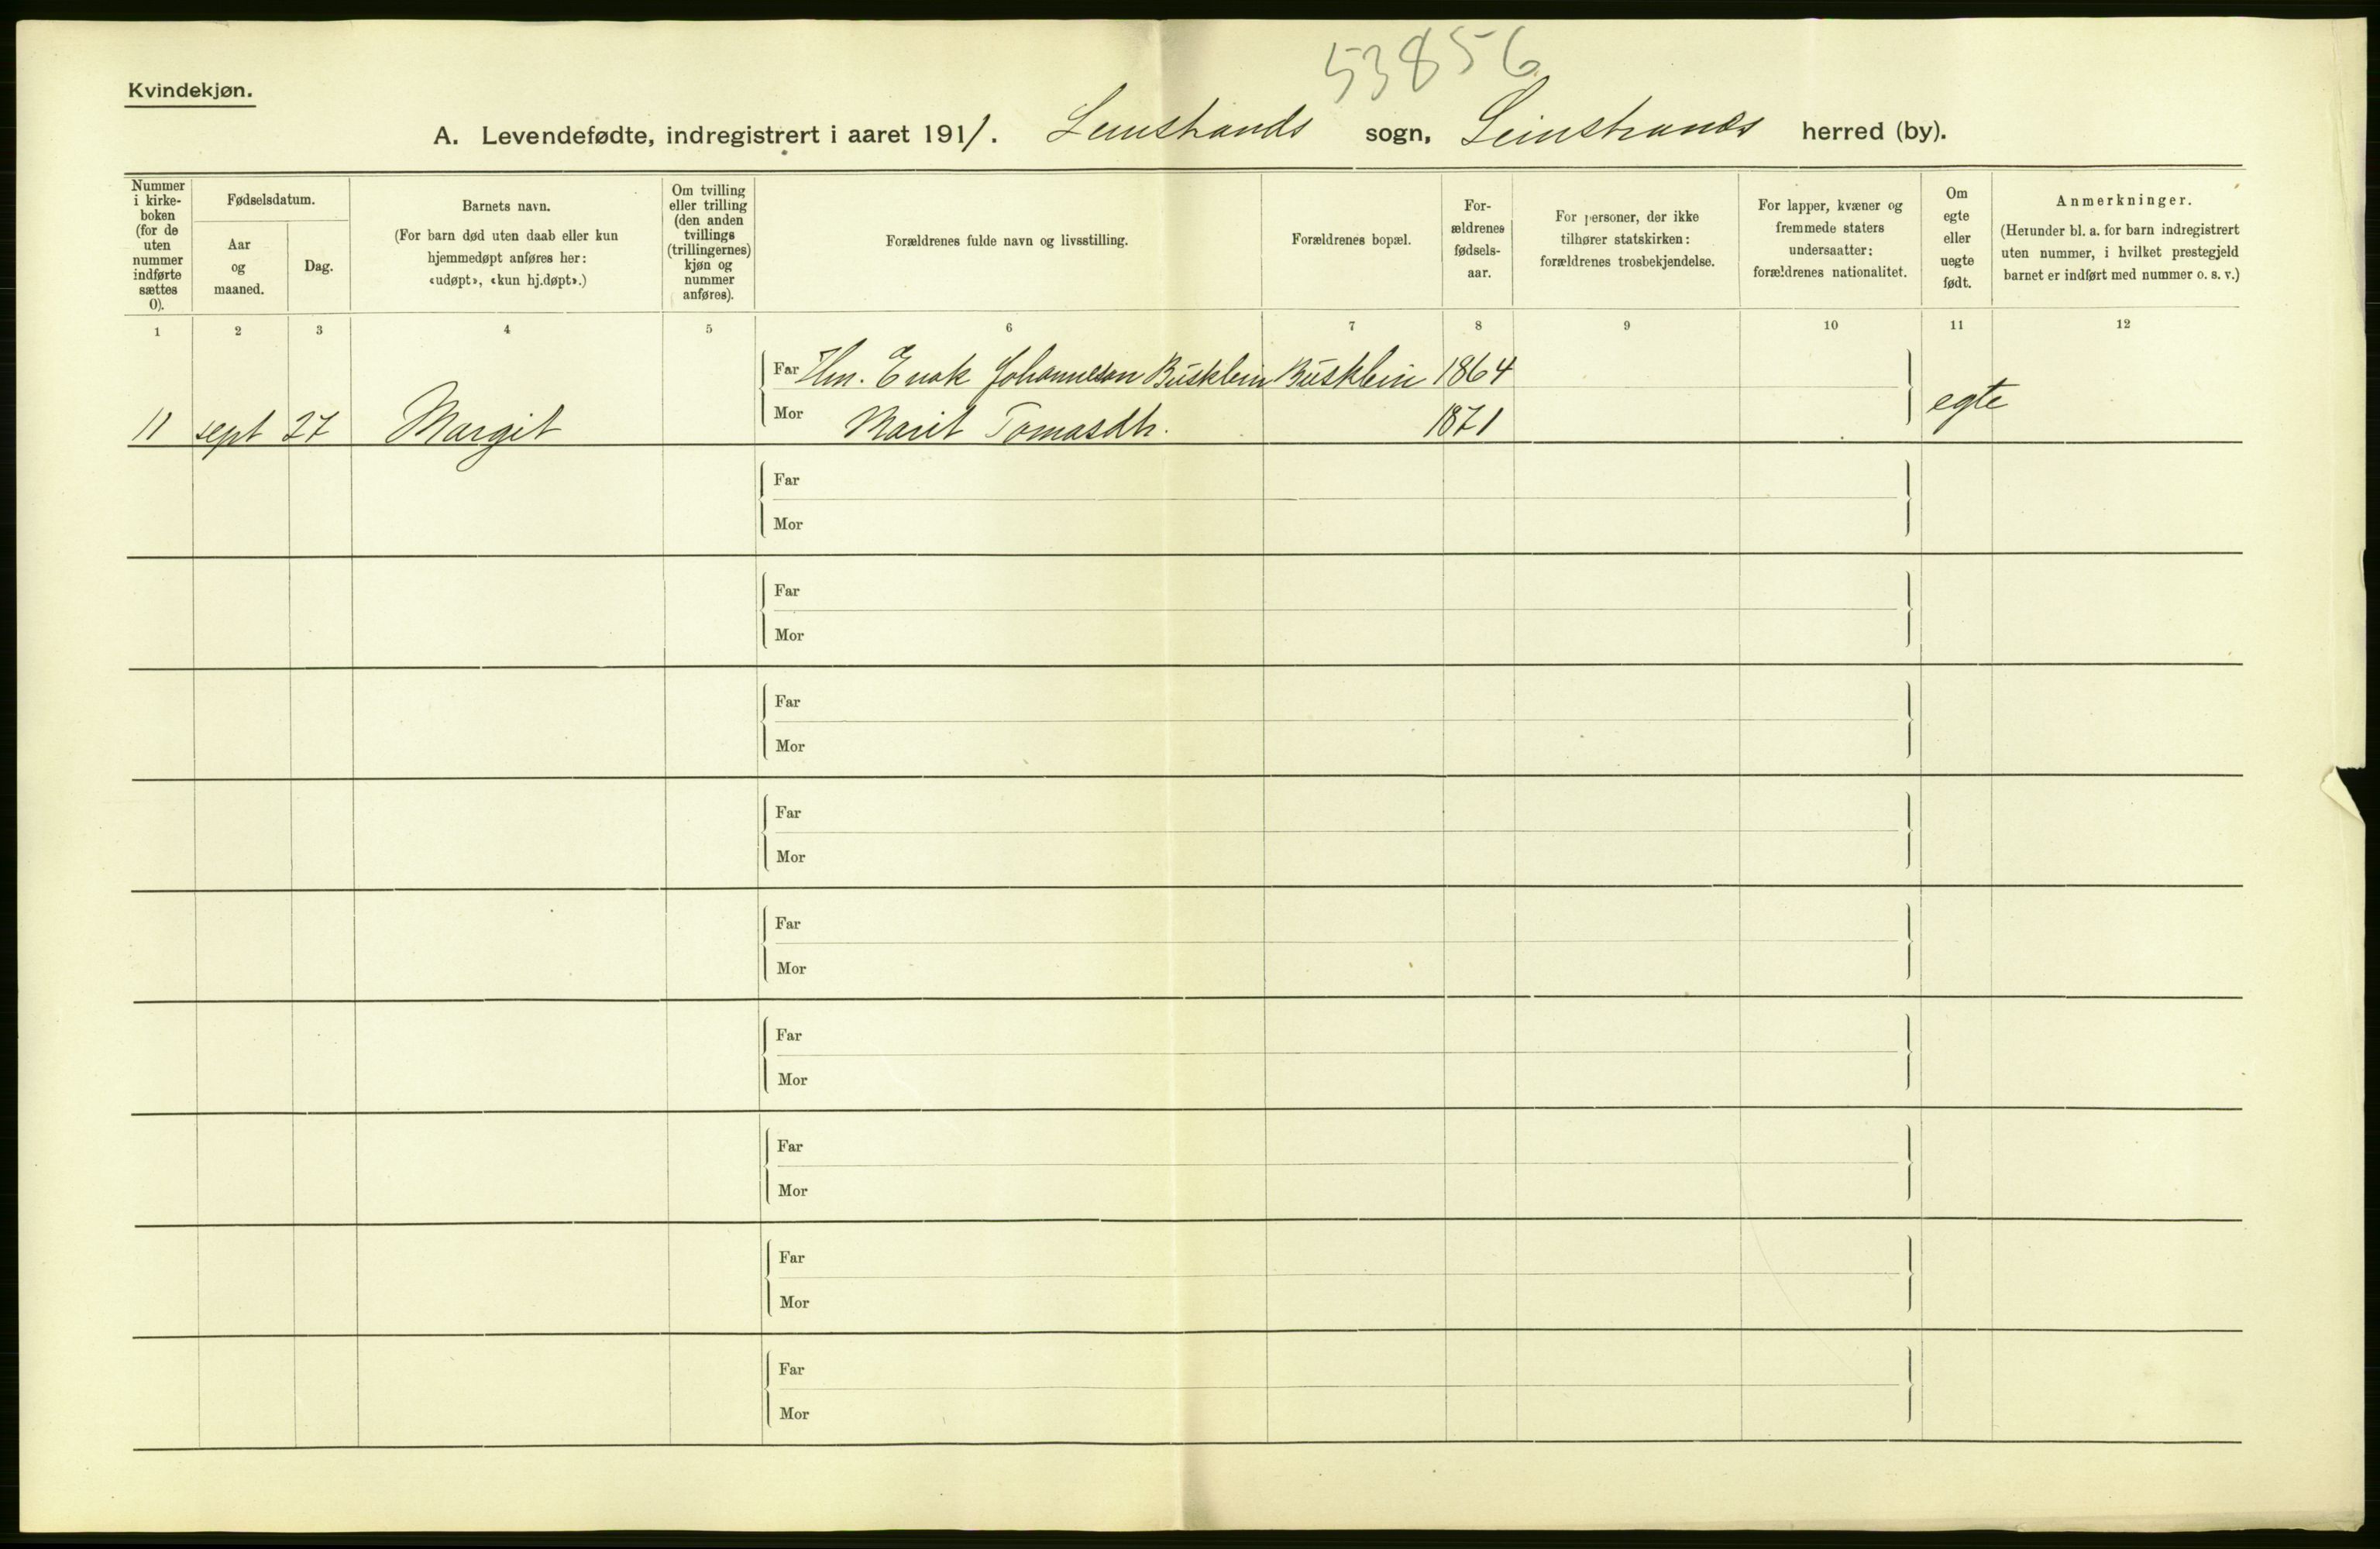 53856
Kvindekjøn.
A. Levendefødte, indregistrert i aaret 1911. Leinstrands sogn, Leinstrands herred (by).
Nummer i kirke-boken (for de uten nummer indførte sættes 0).
Fødselsdatum.
Aar og maaned.
Dag.
Barnets navn.
(For barn død uten daab eller kun
hjemmedøpt anføres her:
«udøpt», «kun hj.døpt».)
Om tvilling
eller trilling
(den anden
tvillings
(trillingernes)
kjøn og
nummer
anføres).
Forældrenes fulde navn og livsstilling.
Forældrenes bopæl.
For-
ældrenes
fødsels-
aar.
For personer, der ikke
tilhører statskirken:
forældrenes trosbekjendelse.
For lapper, kvæner og
fremmede staters
undersaatter:
forældrenes nationalitet.
Om
egte
eller
uegte
født.
Anmerkninger.
(Herunder bl. a. for barn indregistrert
uten nummer, i hvilket prestegjeld
barnet er indført med nummer o. s. v.)
1 2 3 4 5 6 7 8 9 10 11 12
Far Hm. Enok Johannesen Busklein Busklein 1864
11 sept 27 Margit Mor Marit Tomasdtr. 1871 egte
Far
Mor
Far
Mor
Far
Mor
Far
Mor
Far
Mor
Far
Mor
Far
Mor
Far
Mor
Far
Mor